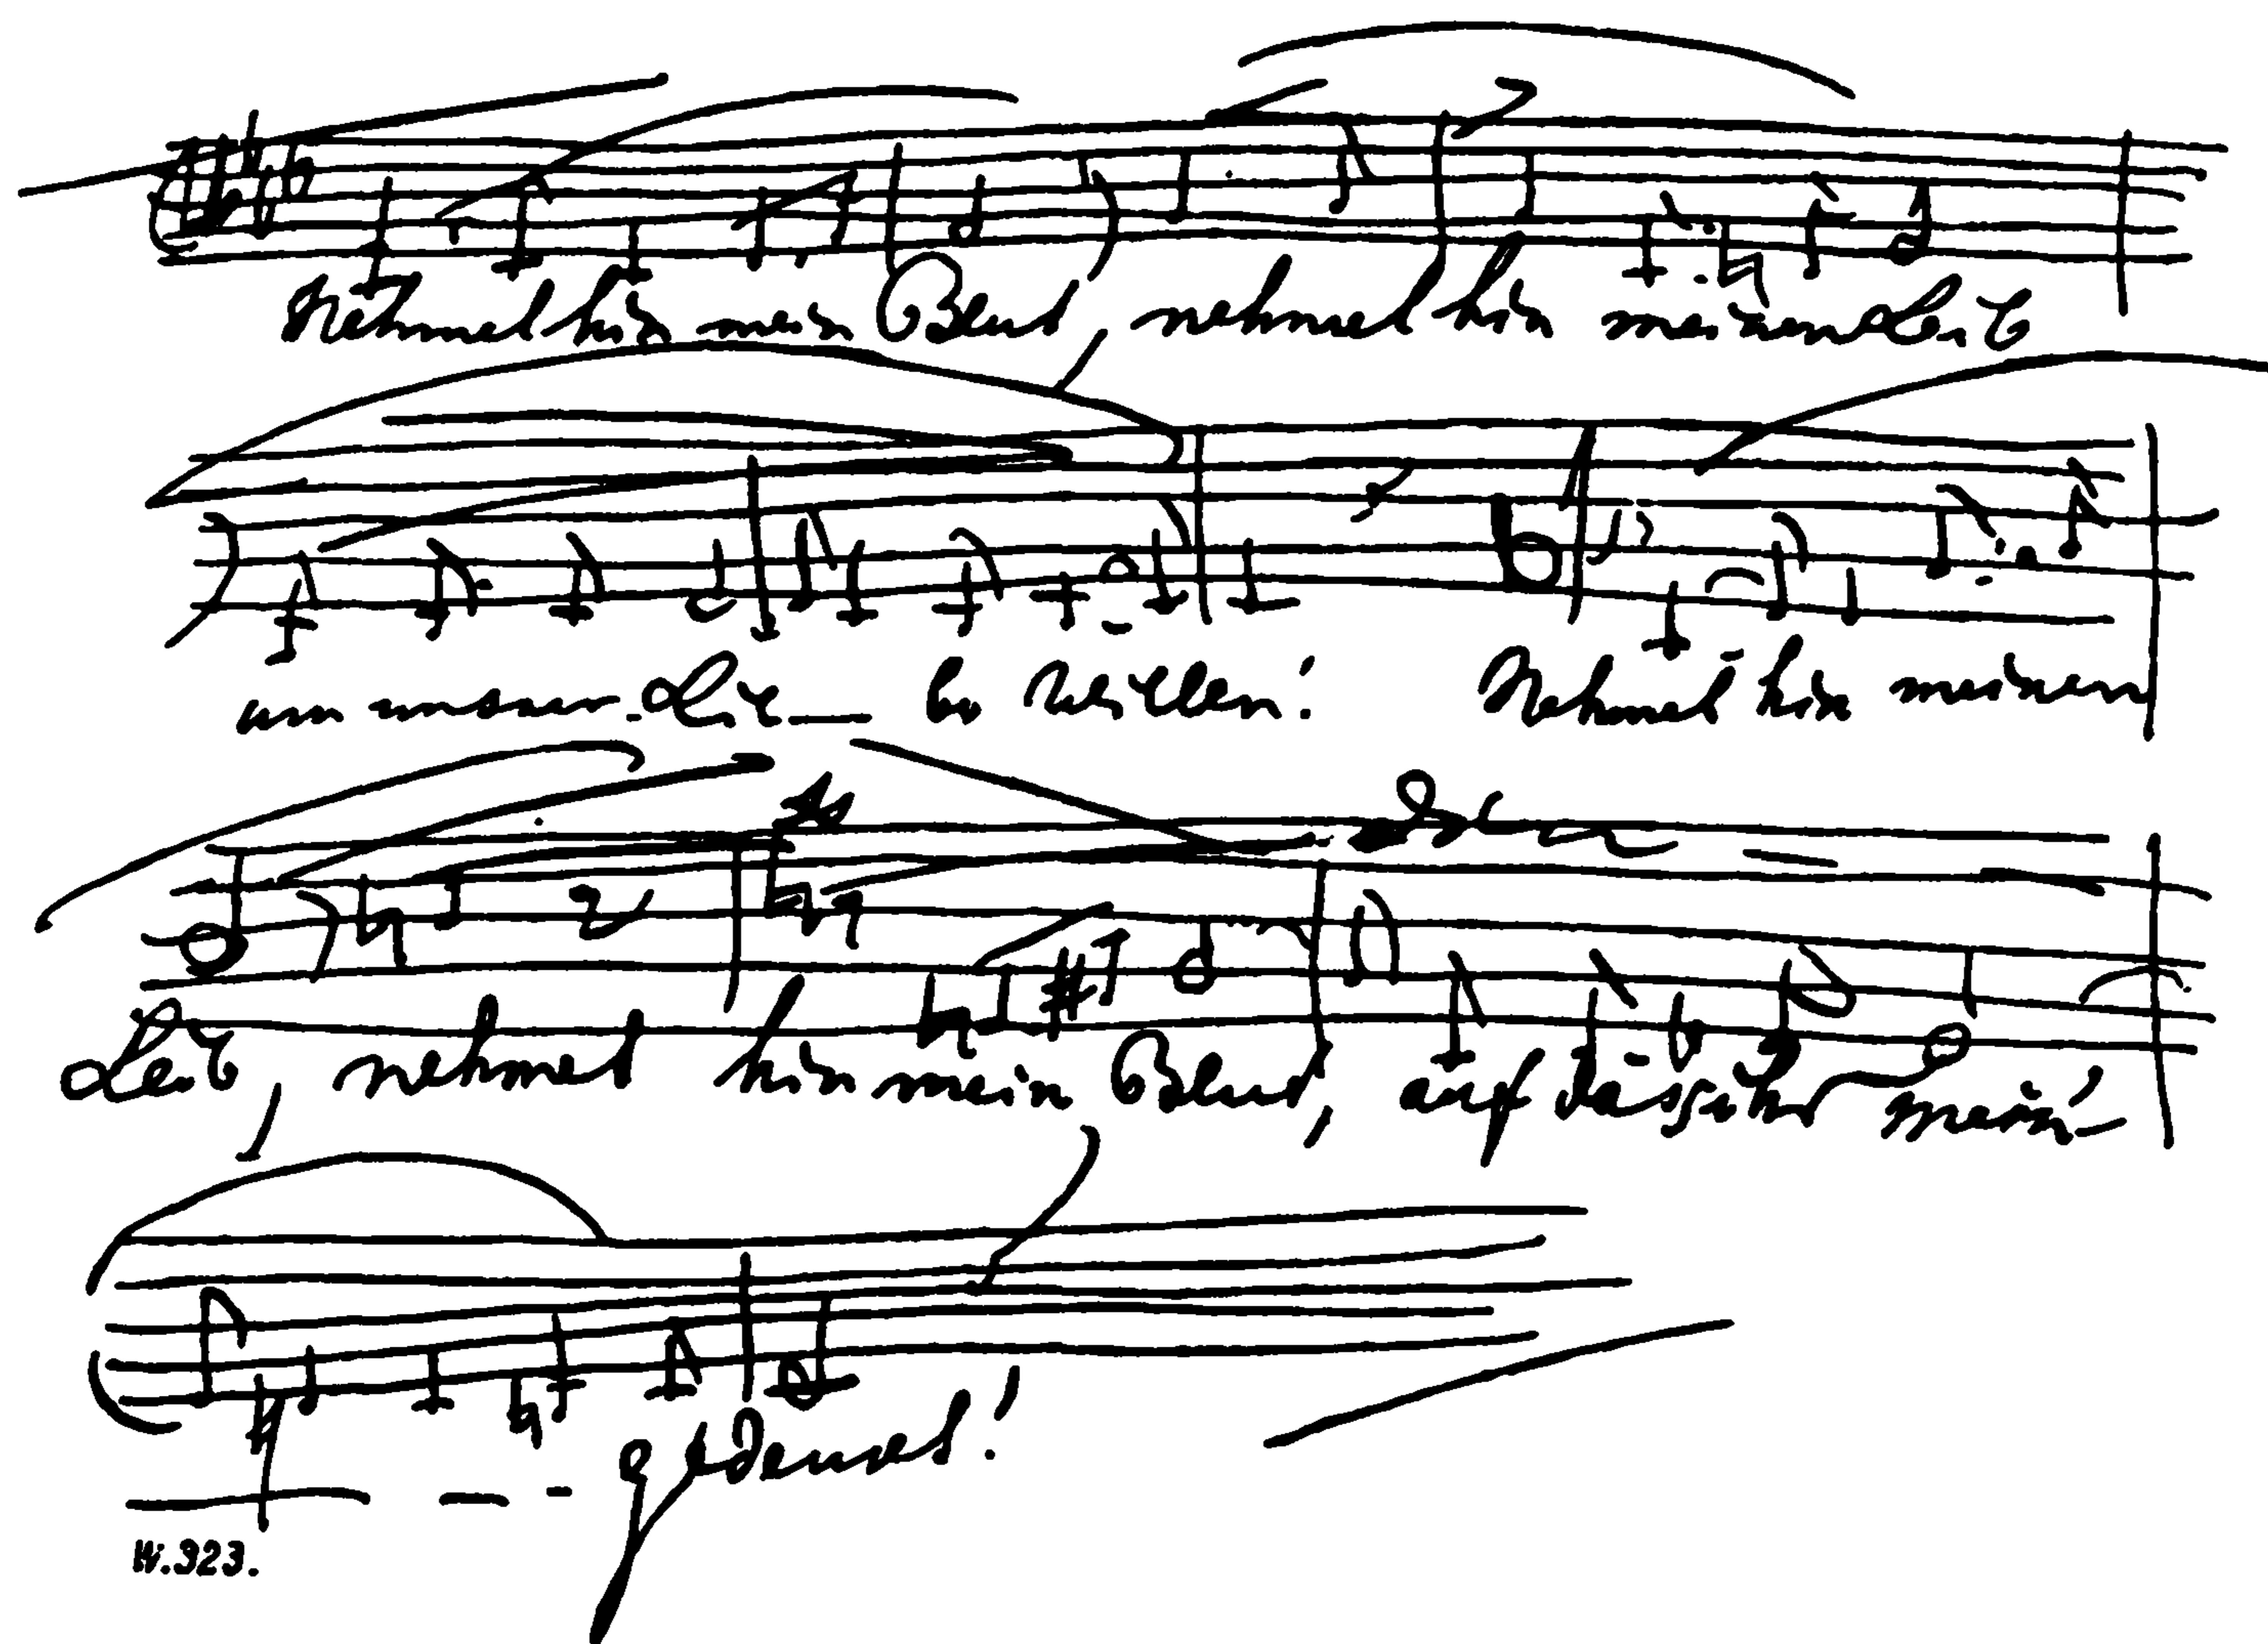 Nehmet hin mein Blut nehmet hin meinen Leib
um unsrer Lie — be Willen! Nehmet hin meinen
Leib, nehmet hin mein Blut, auf dass ihr mein'
— — - gedenket!
W.323.